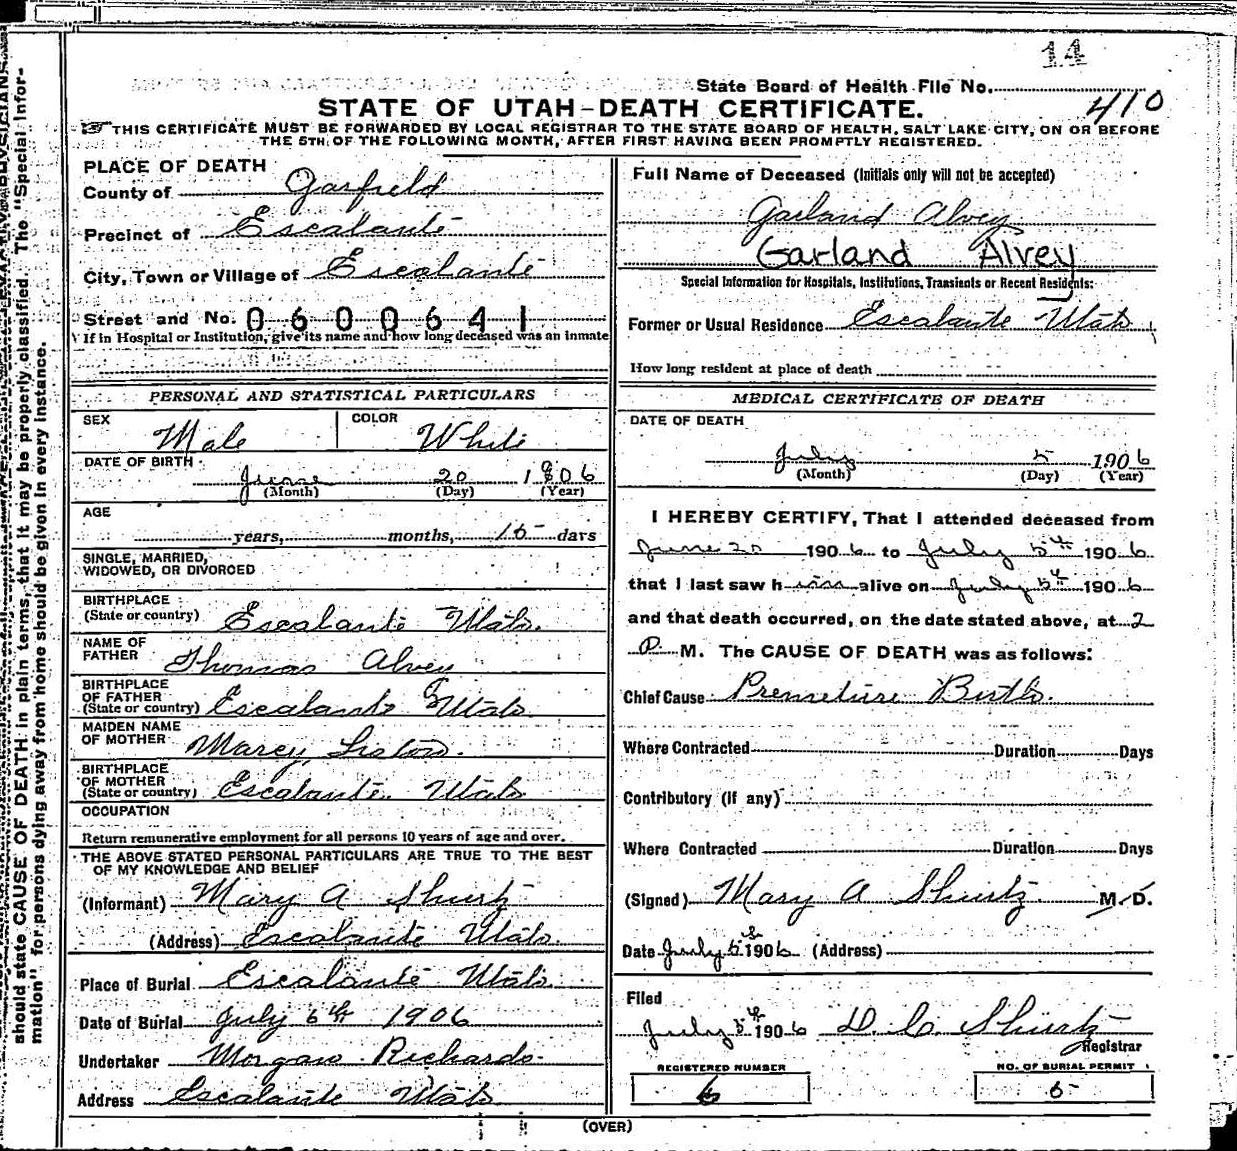 14
State Board of Health File No.
410
STATE OF UTAH-DEATH CERTIFICATE.
THIS CERTIFICATE MUST BE FORWARDED BY LOCAL REGISTRAR TO THE STATE BOARD OF HEALTH, SALT LAKE CITY, ON OR BEFORE
THE 5TH OF THE FOLLOWING MONTH, AFTER FIRST HAVING BEEN PROMPTLY REGISTERED.
PLACE OF DEATH
County of Garfield
Precinct of Escalante
City, Town or Village of Escalante
Street and No. 0600641
If in Hospital or Institution, give its name and how long deceased was an inmate
PERSONAL AND STATISTICAL PARTICULARS
SEX Male COLOR White
DATE OF BIRTH
June 20 1906
(Month) (Day) (Year)
AGE
years, months, 15 days
SINGLE, MARRIED,
WIDOWED, OR DIVORCED
BIRTHPLACE
(State or country) Escalante Utah.
NAME OF
FATHER Thomas Alvey
BIRTHPLACE
OF FATHER
(State or country) Escalante Utah
MAIDEN NAME
OF MOTHER Marcy Liston.
BIRTHPLACE
OF MOTHER
(State or country) Escalante Utah
OCCUPATION
Return remunerative employment for all persons 10 years of age and over.
THE ABOVE STATED PERSONAL PARTICULARS ARE TRUE TO THE BEST
OF MY KNOWLEDGE AND BELIEF
(Informant) Mary A Shurtz
(Address) Escalante Utah.
Place of Burial Escalante Utah.
Date of Burial July 6th 1906
Undertaker Morgan Richards
Address Escalante Utah
Full Name of Deceased (Initials only will not be accepted)
Garland Alvey
Garland Alvey
Special Information for Hospitals, Institutions, Transients or Recent Residents:
Former or Usual Residence Escalante Utah
How long resident at place of death
MEDICAL CERTIFICATE OF DEATH
DATE OF DEATH
July 5 1906
(Month) (Day) (Year)
I HEREBY CERTIFY, That I attended deceased from
June 20 1906 to July 5th 1906
that I last saw him alive on July 5th 1906
and that death occurred, on the date stated above, at 2
P. M. The CAUSE OF DEATH was as follows:
Chief Cause Premeture Birth.
Where Contracted Duration Days
Contributory (if any)
Where Contracted Duration Days
(Signed) Mary A Shurtz M.D.
Date July 5th 1906 (Address)
Filed
July 5th 1906 D. C. Shurtz
Registrar
REGISTERED NUMBER NO. OF BURIAL PERMIT
6 5
(OVER)
should state CAUSE OF DEATH in plain terms, that it may be properly classified. The "Special Infor-
mation" for persons dying away from home should be given in every instance.